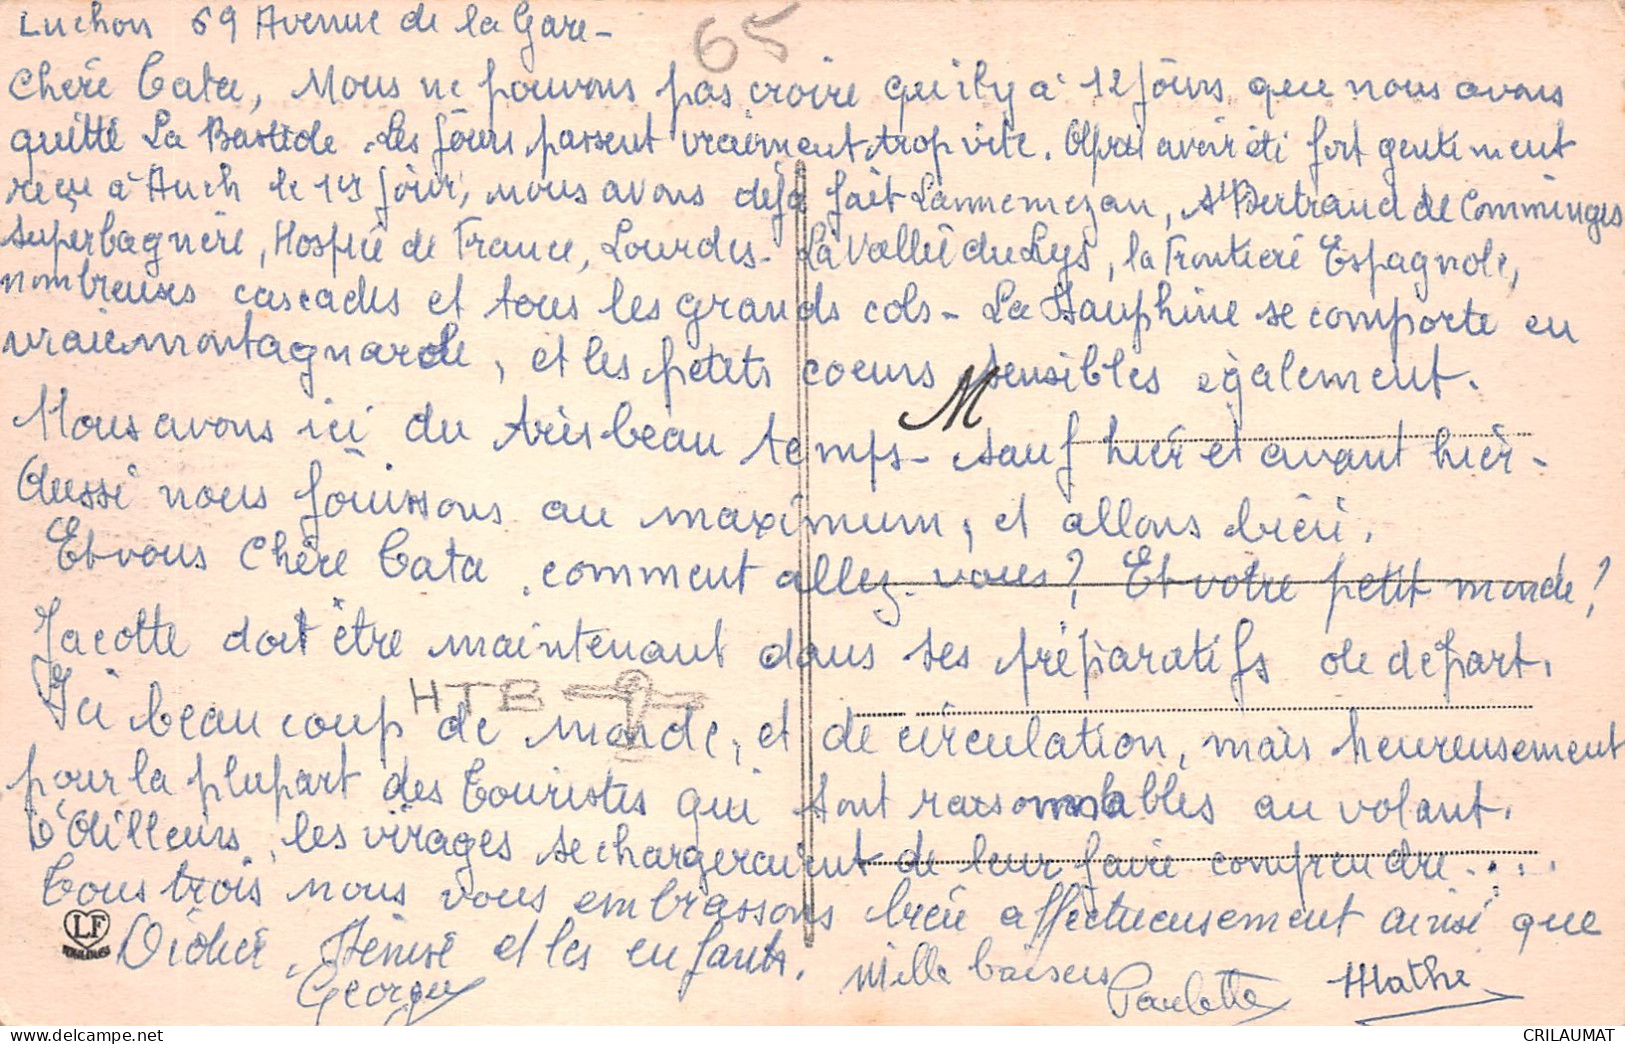 Luchon 69 Avenue de la Gare -
65
Chère Tata, Nous ne pouvons pas croire qu'il y a 12 jours que nous avons
quitté La Bastide. Les jours passent vraiment trop vite. Après avoir été fort gentiment
reçu à Auch le 1er jour, nous avons déjà fait Lannemezan, St Bertrand de Comminges
Superbagnère, Hospice de France, Lourdes - La Vallée du Lys, la Frontière Espagnole,
nombreuses cascades et tous les grands cols - La Dauphine se comporte en
vraie montagnarde, et les petits coeurs sensibles également.
M
Nous avons ici du très beau temps - sauf hier et avant hier -
Aussi nous jouissons au maximum, et allons bien.
Et vous Chère Tata, comment allez-vous ? Et votre petit monde ?
Jacotte doit être maintenant dans ses préparatifs de départ.
HTB
Ici beaucoup de monde, et de circulation, mais heureusement
pour la plupart des touristes qui sont raisonnables au volant.
D'Ailleurs, les virages se chargeraient de leur faire comprendre....
Tous trois nous vous embrassons bien affectueusement ainsi que
LF
TOULOUSE
Didier, Denise et les enfants.
Mille baisers Paulette Mathé
Georges
CRILAUMAT